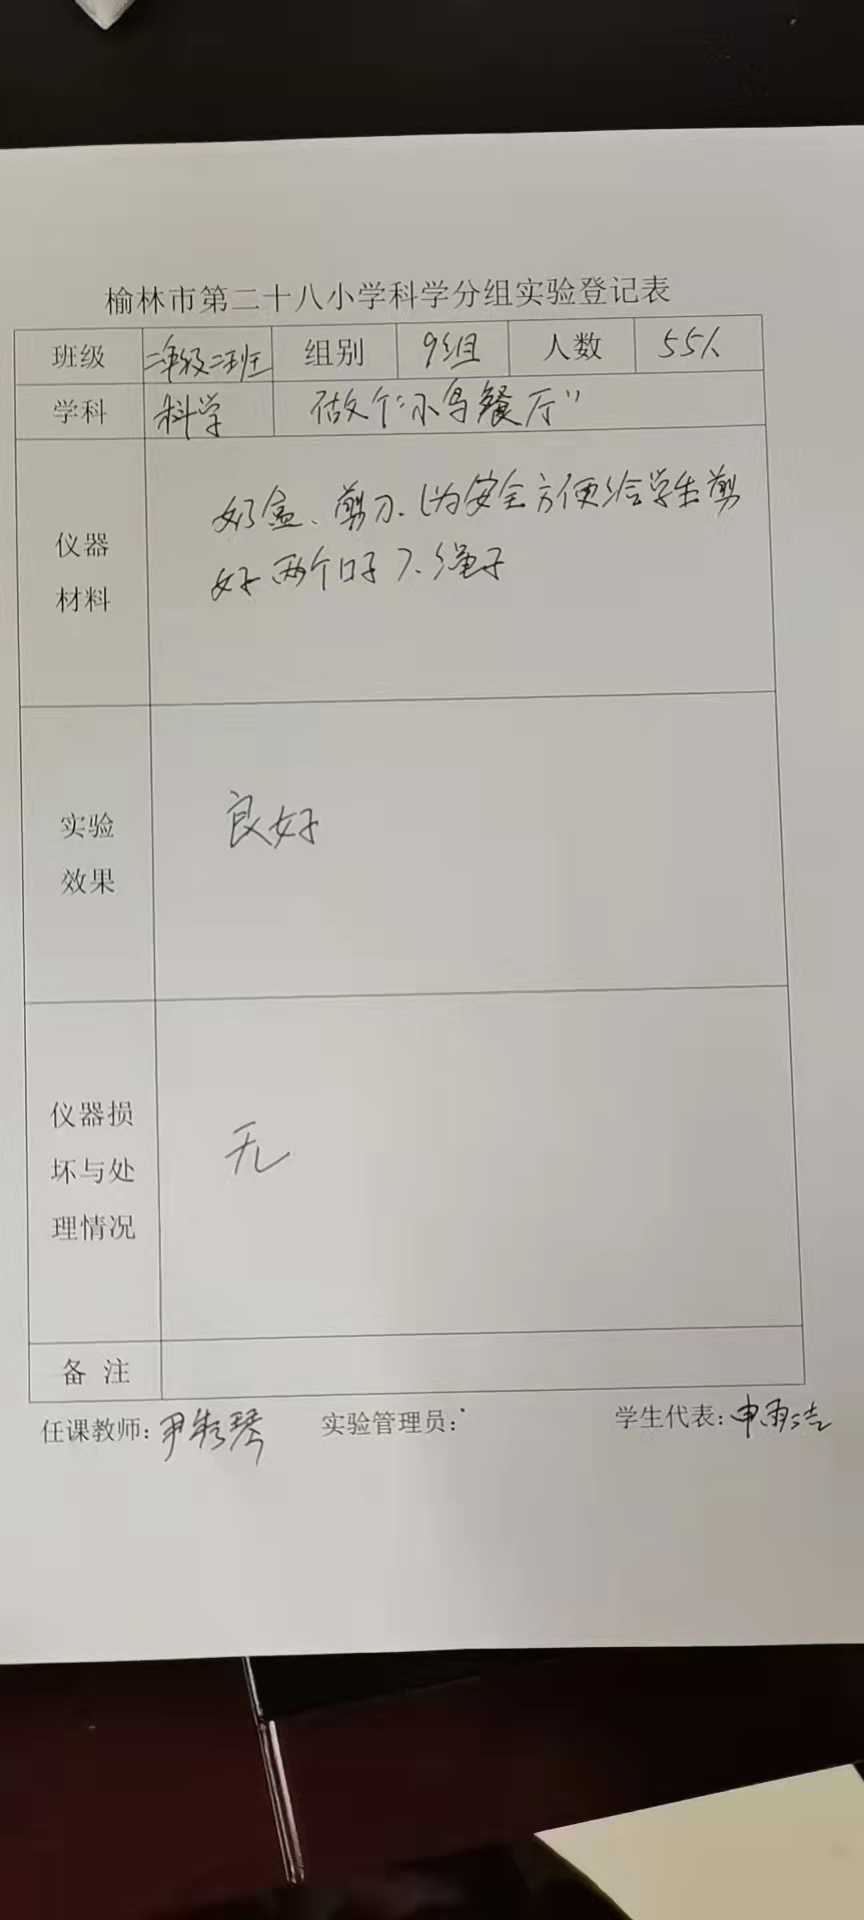 榆林市第二十八小学科学分组实验登记表
班级 二年级二班 组别 9组 人数 55人
学科 科学 做个“小鸟餐厅”
仪器
材料
奶盒、剪刀、(为安全方便给学生剪
好两个口子)、绳子
实验
效果
良好
仪器损
坏与处
理情况
无
备 注
任课教师: 尹 琴 实验管理员: 学生代表: 申雨洁